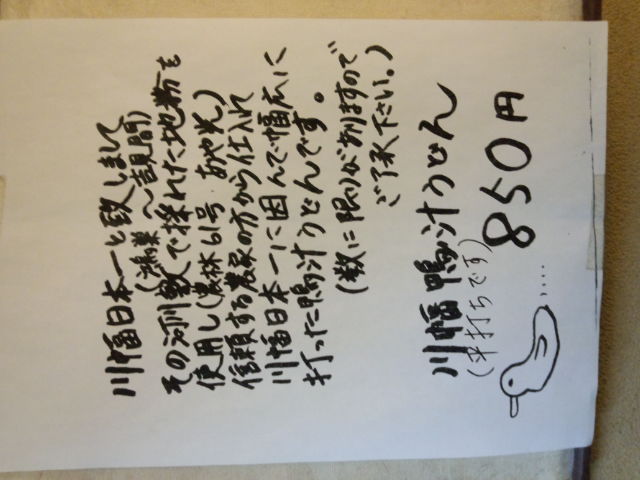 川幅日本一と致しまして
(鴻巣〜吉見間)
その河川敷で採れた地粉を
使用し(農林61号 あやひかり)
信頼する農家の方から仕入れ
川幅日本一に因んで幅広に
打った鴨汁うどんです。
(数に限りがありますので
ご了承下さい。)
川幅鴨汁うどん
(平打ちです)
850円